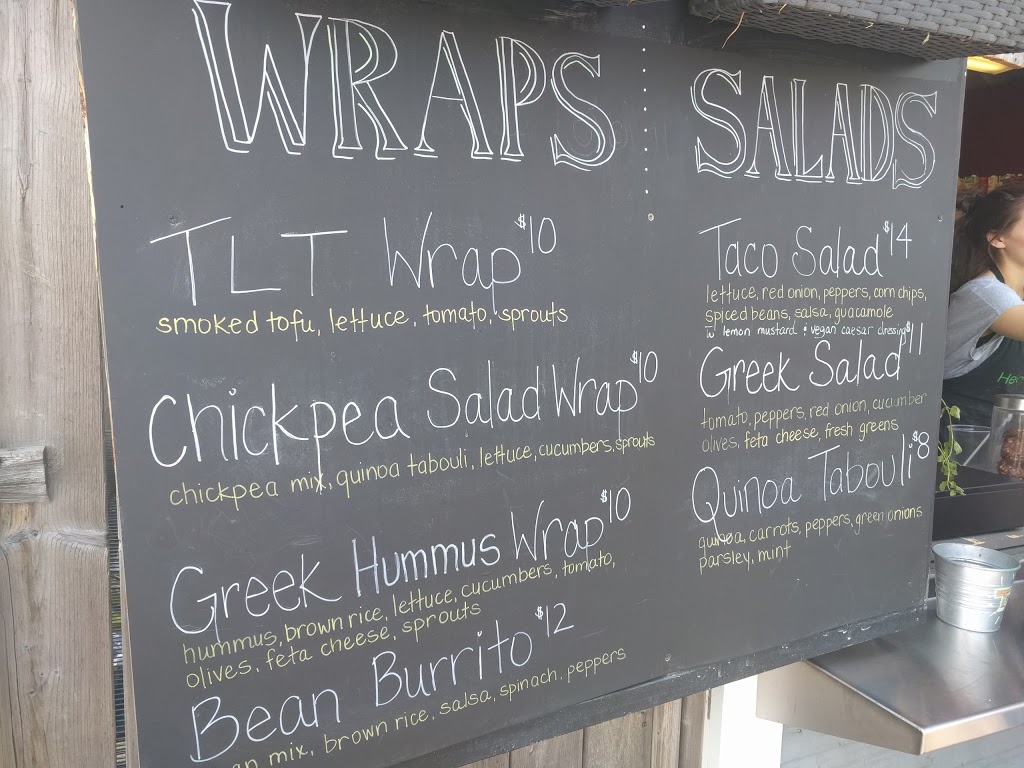 WRAPS
TLT Wrap $10
smoked tofu, lettuce, tomato, sprouts
Chickpea Salad Wrap $10
chickpea mix, quinoa tabouli, lettuce, cucumbers, sprouts
Greek Hummus Wrap $10
hummus, brown rice, lettuce, cucumbers, tomato,
olives, feta cheese, sprouts
Bean Burrito $12
mix, brown rice, salsa, spinach, peppers
SALADS
Taco Salad $14
lettuce, red onion, peppers, corn chips,
spiced beans, salsa, guacamole
w lemon mustard & vegan caesar dressing
Greek Salad $11
tomato, peppers, red onion, cucumber
olives, feta cheese, fresh greens
Quinoa Tabouli $8
quinoa, carrots, peppers, green onions
parsley, mint